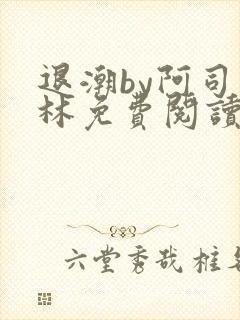 退潮by阿司
林免費閱讀
六堂秀哉框